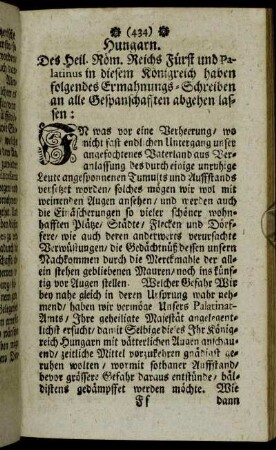 (434)
Hungarn.
Des Heil. Röm. Reichs Fürst und Pa-
latinus in diesem Königreich haben
folgendes Ermahnungs-Schreiben
an alle Gespanschafften abgehen las-
sen:
IN was vor eine Verheerung, wo
nicht fast endlichen Untergang unser
angefochtenes Vaterland aus Ver-
anlassung des durch einige unruhige
Leute angesponnenen Tumults und Auffstands
versetzt worden, solches mögen wir wol mit
weinenden Augen ansehen, und werden auch
die Einäscherungen so vieler schöner wohn-
hafften Plätze, Städte, Flecken und Dörf-
fere, wie auch deren anderwerts verursachte
Verwüstungen, die Gedächtnüß dessen unsern
Nachkommen durch die Merckmahle der all-
ein stehen gebliebenen Mauren, noch ins künf-
tig vor Augen stellen. Welcher Gefahr Wir
bey nahe gleich in deren Ursprung wahr neh-
mend, haben wir vermöge Unsers Palatinat-
Amts, Ihre geheiligte Majestät angelegent-
lichst ersucht, damit Selbige dieses Ihr König-
reich Hungarn mit vätterlichen Augen anschau-
end, zeitliche Mittel vorzukehren gnädigst ge-
ruhen wolten, wormit sothaner Auffstand,
bevor grössere Gefahr daraus entstünde, bäl-
distens gedämpffet werden möchte. Wie
Ff dann